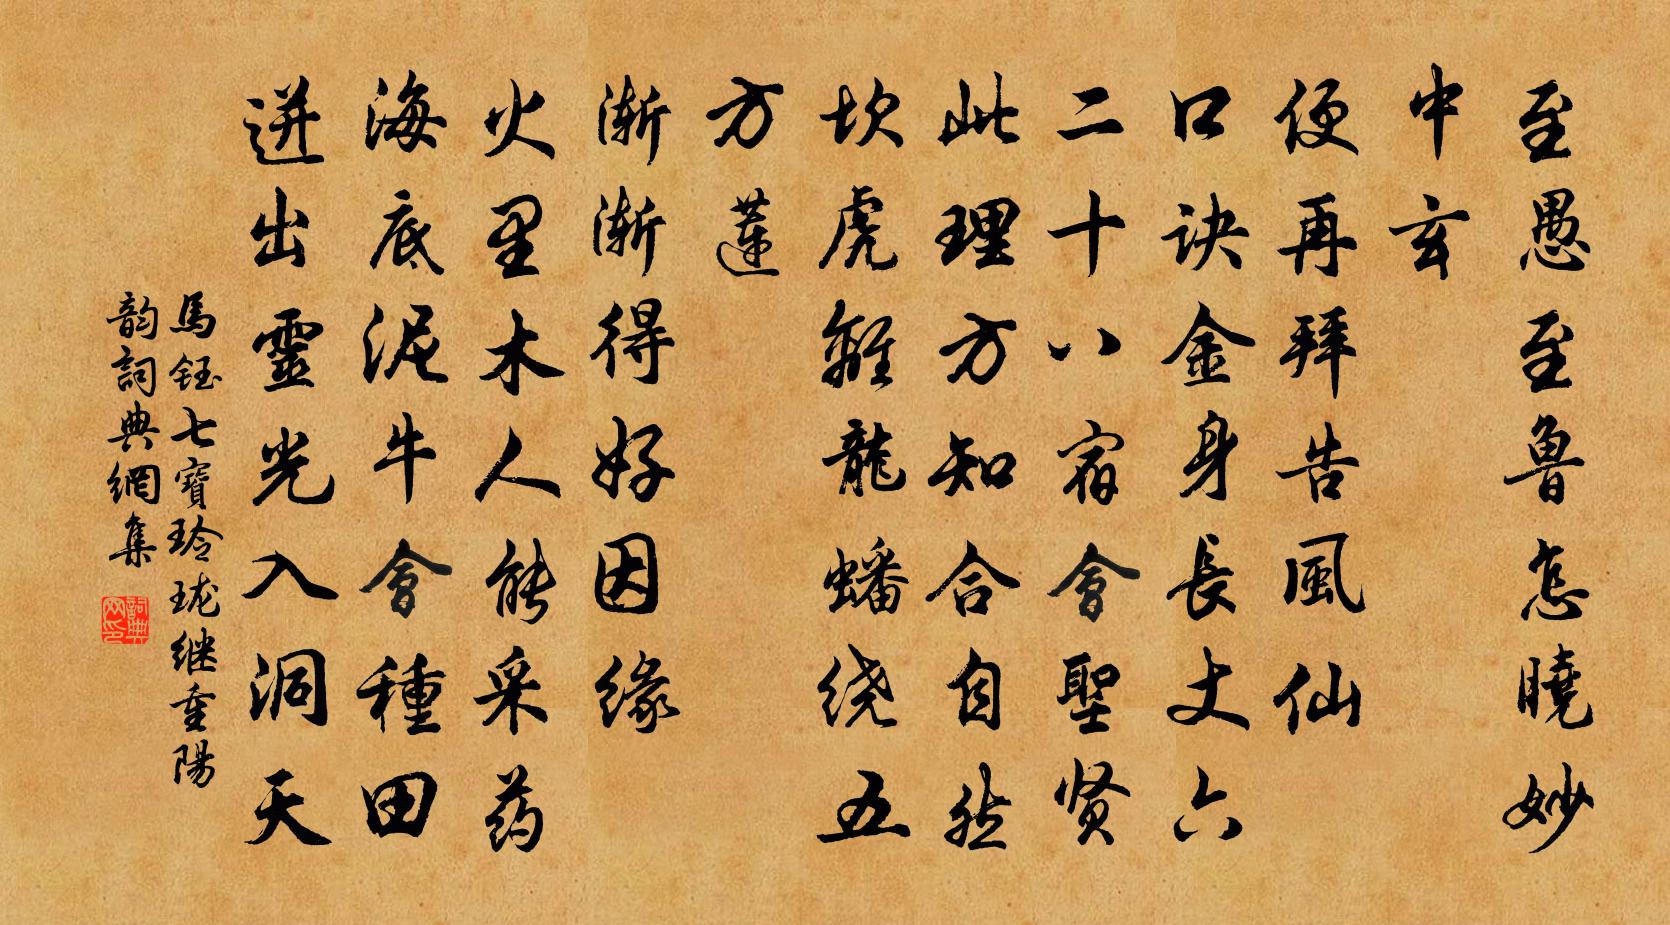 至愚至魯怎曉妙
中玄
便再拜告風仙
口訣金身長丈六
二十八宿會聖賢
此理方知合自然
坎虎離龍蟠绕五
方蓮
漸漸得好因缘
火里木人能采药
海底泥牛會種田
迸出靈光入洞天
馬鈺七寶玲珑继重陽
韵詞典網集
詞典网印